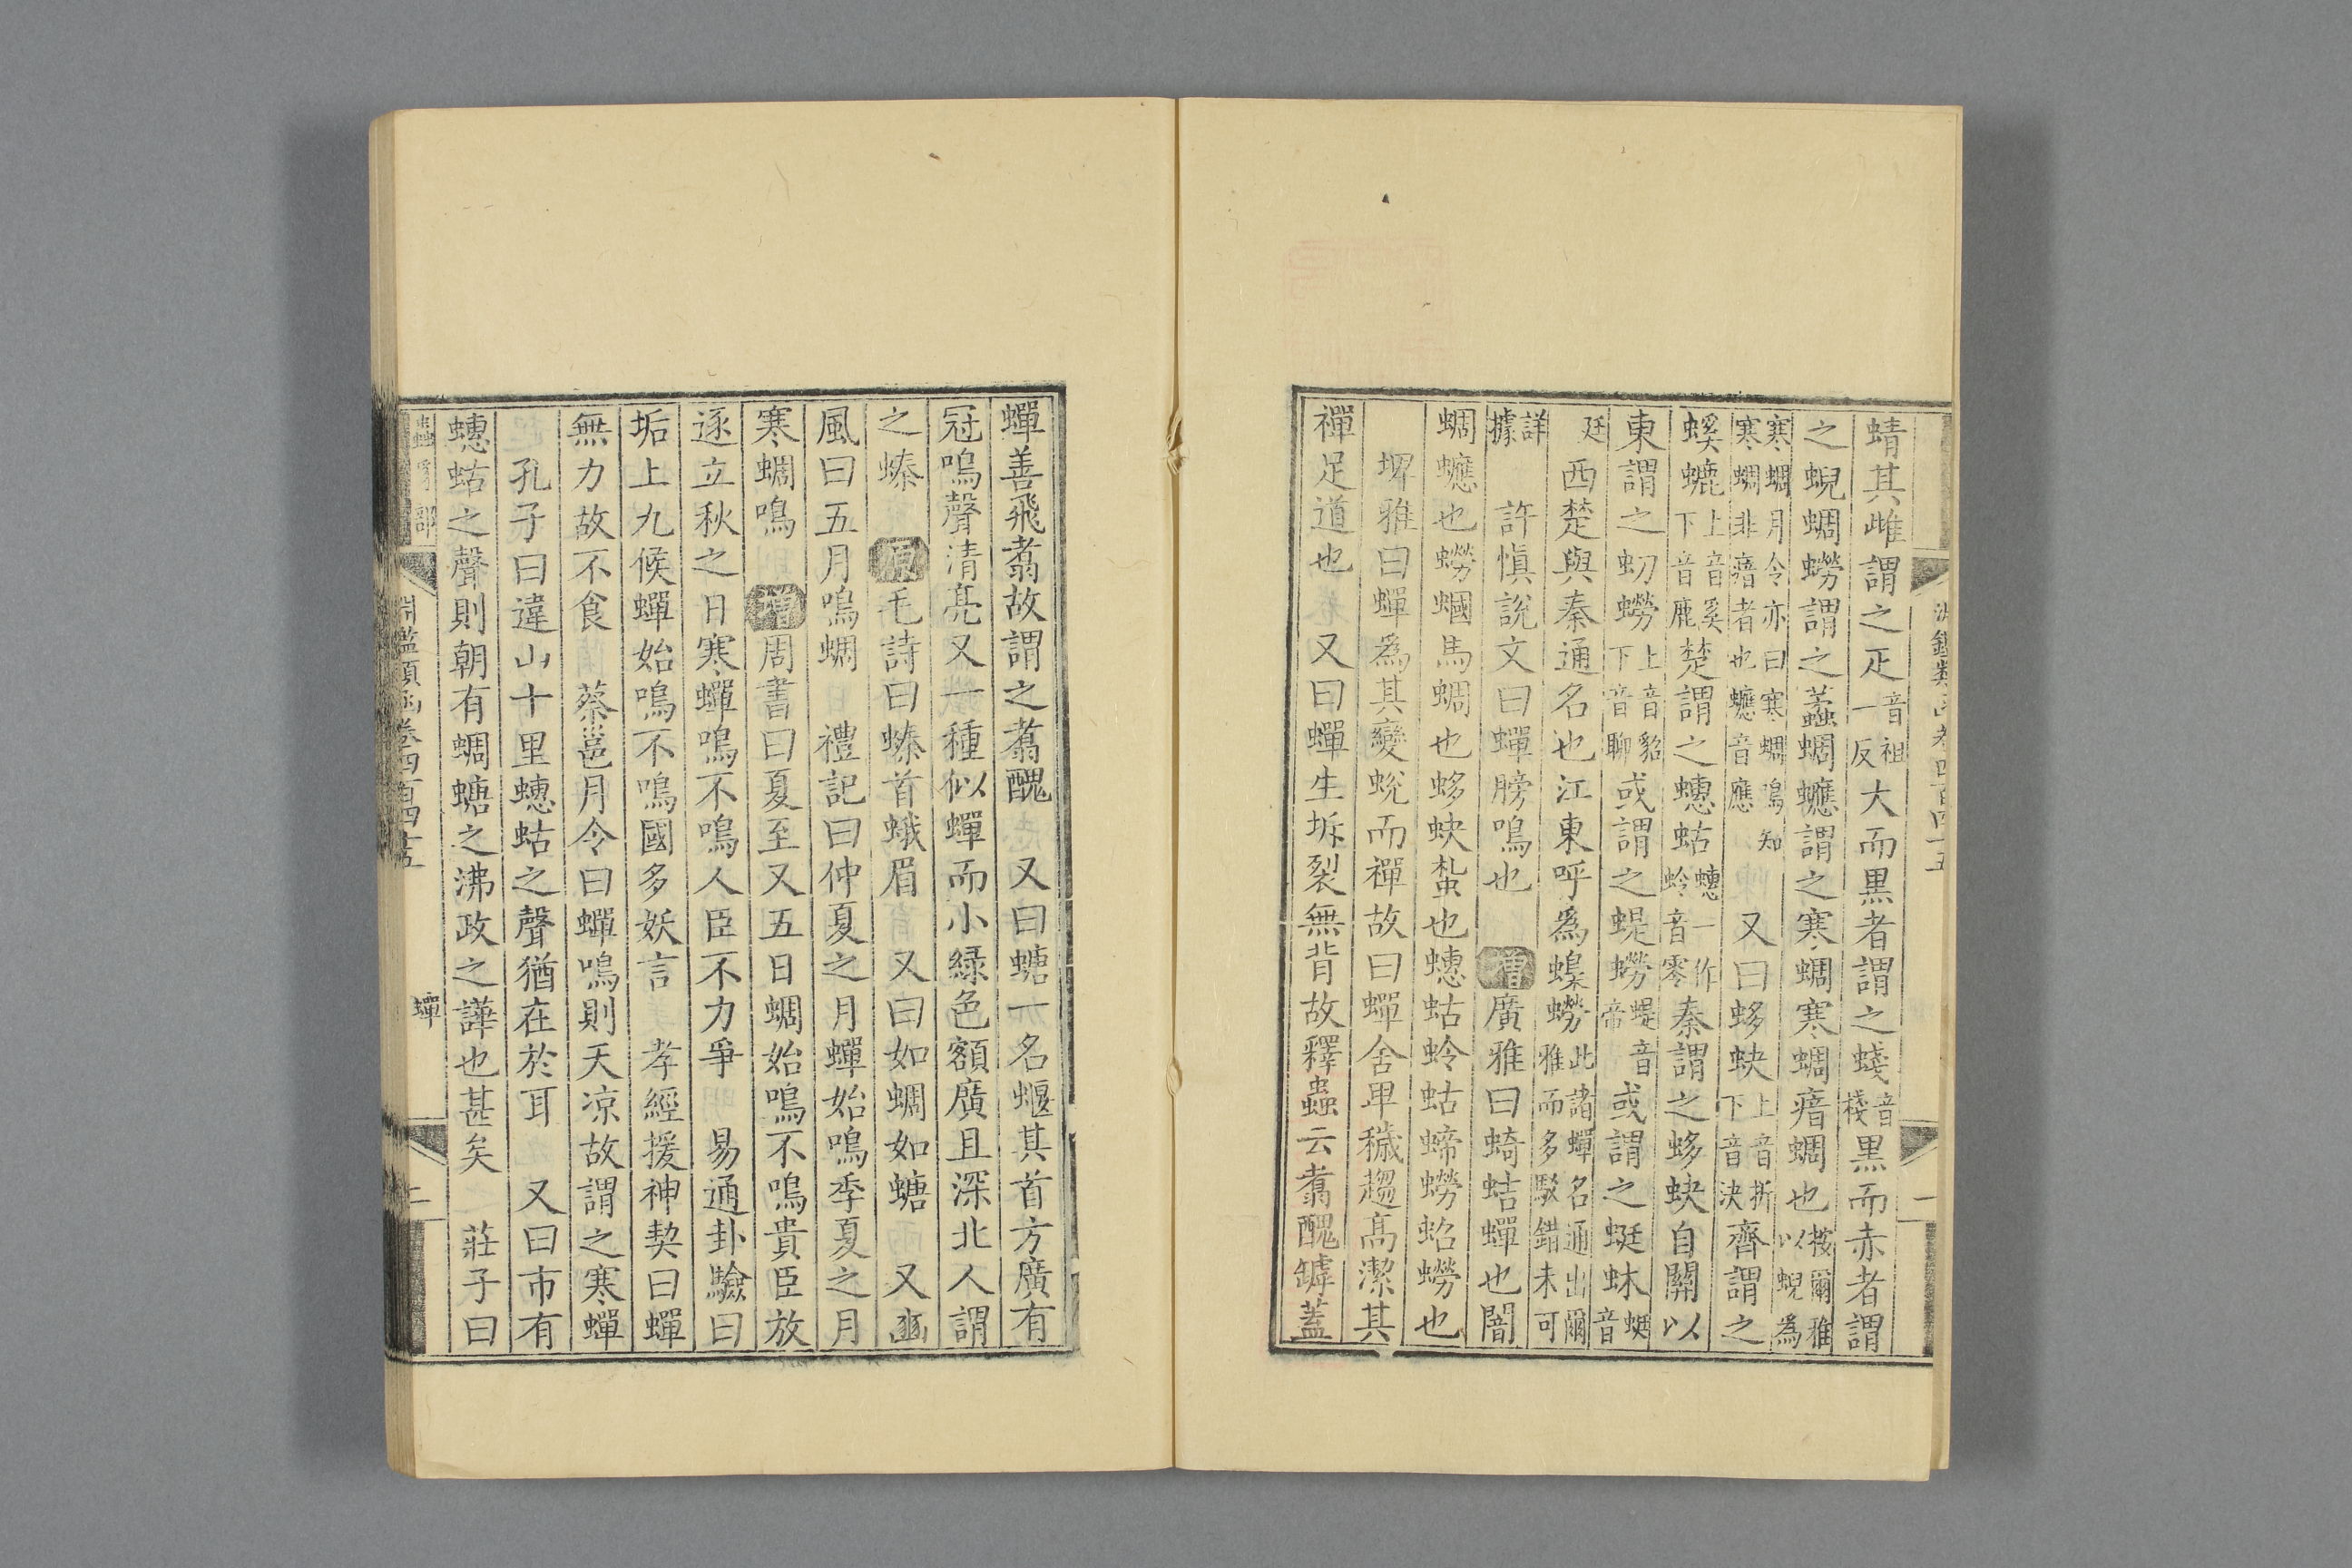 蜻其雌謂之疋音祖一反大而黒者謂之䗃音棧黒而赤者謂
之蜺蜩蟧謂之蠽蜩蠟謂之寒蜩寒蜩瘖蜩也按爾雅以蜺爲
寒蜩月令亦曰寒蜩鳴知寒蜩非瘖者也䗹音應 又曰蛥蚗上音折下音決齊謂之
螇螰上音奚下音鹿楚謂之蟪蛄蟪一作蛉音零秦謂之蛥蚗自關以
東謂之虭蟧上音貂下音聊或謂之蝭蟧蝭音帝或謂之蜓蚞蜓音
廷 西楚與秦通名也江東呼爲蟂蟧此諸蟬名通出爾雅而多駁錯未可
詳據 許慎說文曰蟬膀鳴也 增廣雅曰蜻蛣蟬也闇
蜩䗹也蟧蟈馬蜩也蛥蚗蚻也蟪蛄蛉蛄蟧蛁蟧也
埤雅曰蟬爲其變蛻而禪故曰蟬舍卑穢趨高潔其
禪足道也 又曰蟬生坼裂無背故釋蟲云翥醜罅蓋
蟬善飛翥故謂之翥醜 又曰螗一名蝘其首方廣有
冠鳴聲清亮又一種似蟬而小緑色額廣且深北人謂
之螓 原毛詩曰螓首蛾眉 又曰如蜩如螗 又豳
風曰五月鳴蜩 禮記曰仲夏之月蟬始鳴季夏之月
寒蜩鳴 增周書曰夏至又五日蜩始鳴不鳴貴臣放
逐立秋之日寒蟬鳴不鳴人臣不力爭 易通卦驗曰
垢上九候蟬始鳴不鳴國多妖言 孝經援神契曰蟬
無力故不食 蔡邕月令曰蟬鳴則天凉故謂之寒蟬
孔子曰違山十里蟪蛄之聲猶在於耳 又曰市有
蟪蛄之聲則朝有蜩螗之沸政之譁也甚矣 莊子曰
蟲豸部 淵鑑類函卷四百四十五 蟬 二